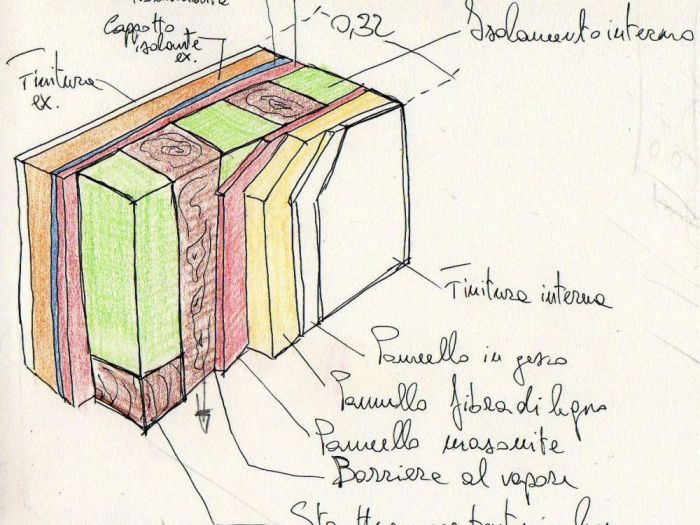 0,32
Isolamento interno
Cappotto
isolante
ex.
Finitura
ex.
Finitura interna
Pannello in gesso
Pannello fibra di legno
Pannello masonite
Barriera al vapore